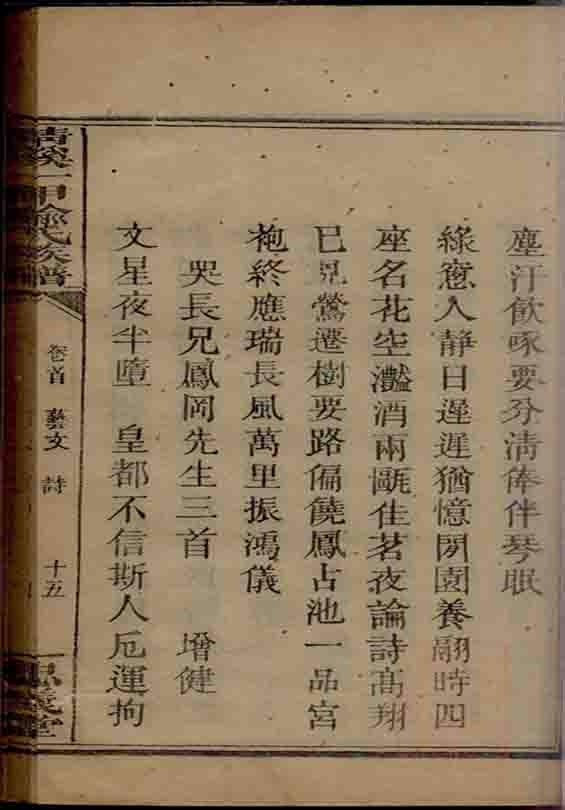 塵汙飲啄要分清俸伴琴眠
綠窻人静日遲遲猶憶閑園養翮時四
座名花空灩酒兩甌佳茗夜論詩高翔
已見鶯遷樹要路偏饒鳳占池一品宮
袍終應瑞長風萬里振鴻儀
哭長兄鳳岡先生三首 增健
文星夜半墮 皇都不信斯人厄運拘
清溪一甲徐氏族譜
卷首 藝文 詩 十五
義堂